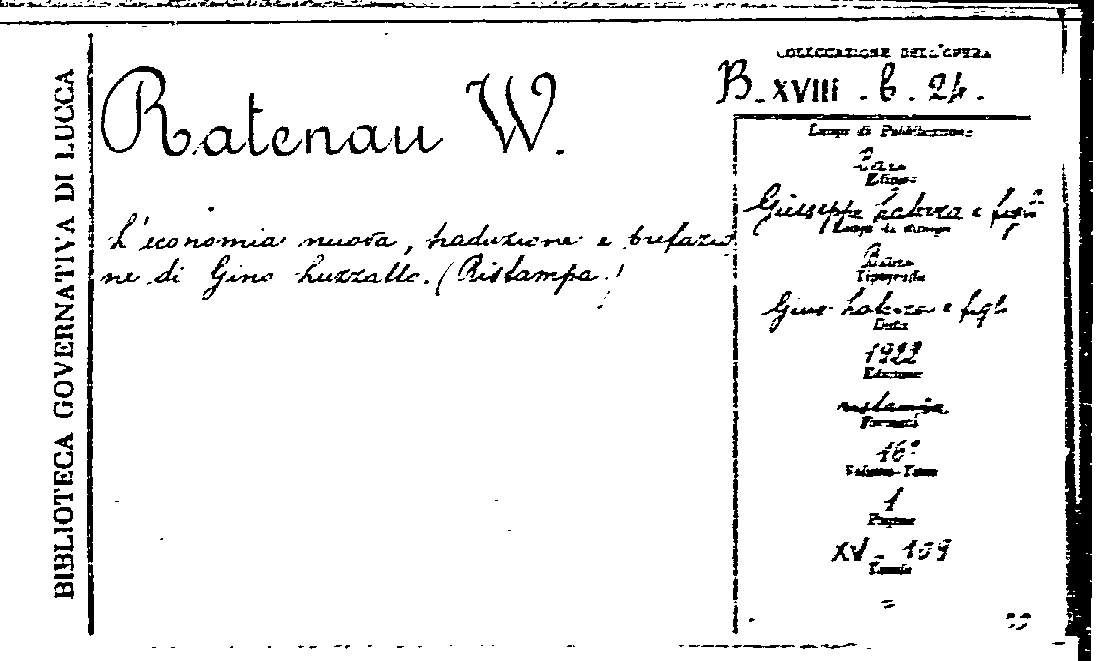 BIBLIOTECA GOVERNATIVA DI LUCCA
COLLOCAZIONE DELL'OPERA
B. XVIII . 6 . 24 .
Ratenau W.
L'economia nuova, traduzione e prefazio
ne di Gino Luzzatto. (Ristampa)
Luogo di Pubblicazione
Bari
Editore
Giuseppe Laterza e figli
Luogo di stampa
Bari
Tipografia
Gius. Laterza e figli
Data
1922
Edizione
ristampa
Formato
16°
Volume-Tomo
1
Pagine
XV - 109
Tavole
=